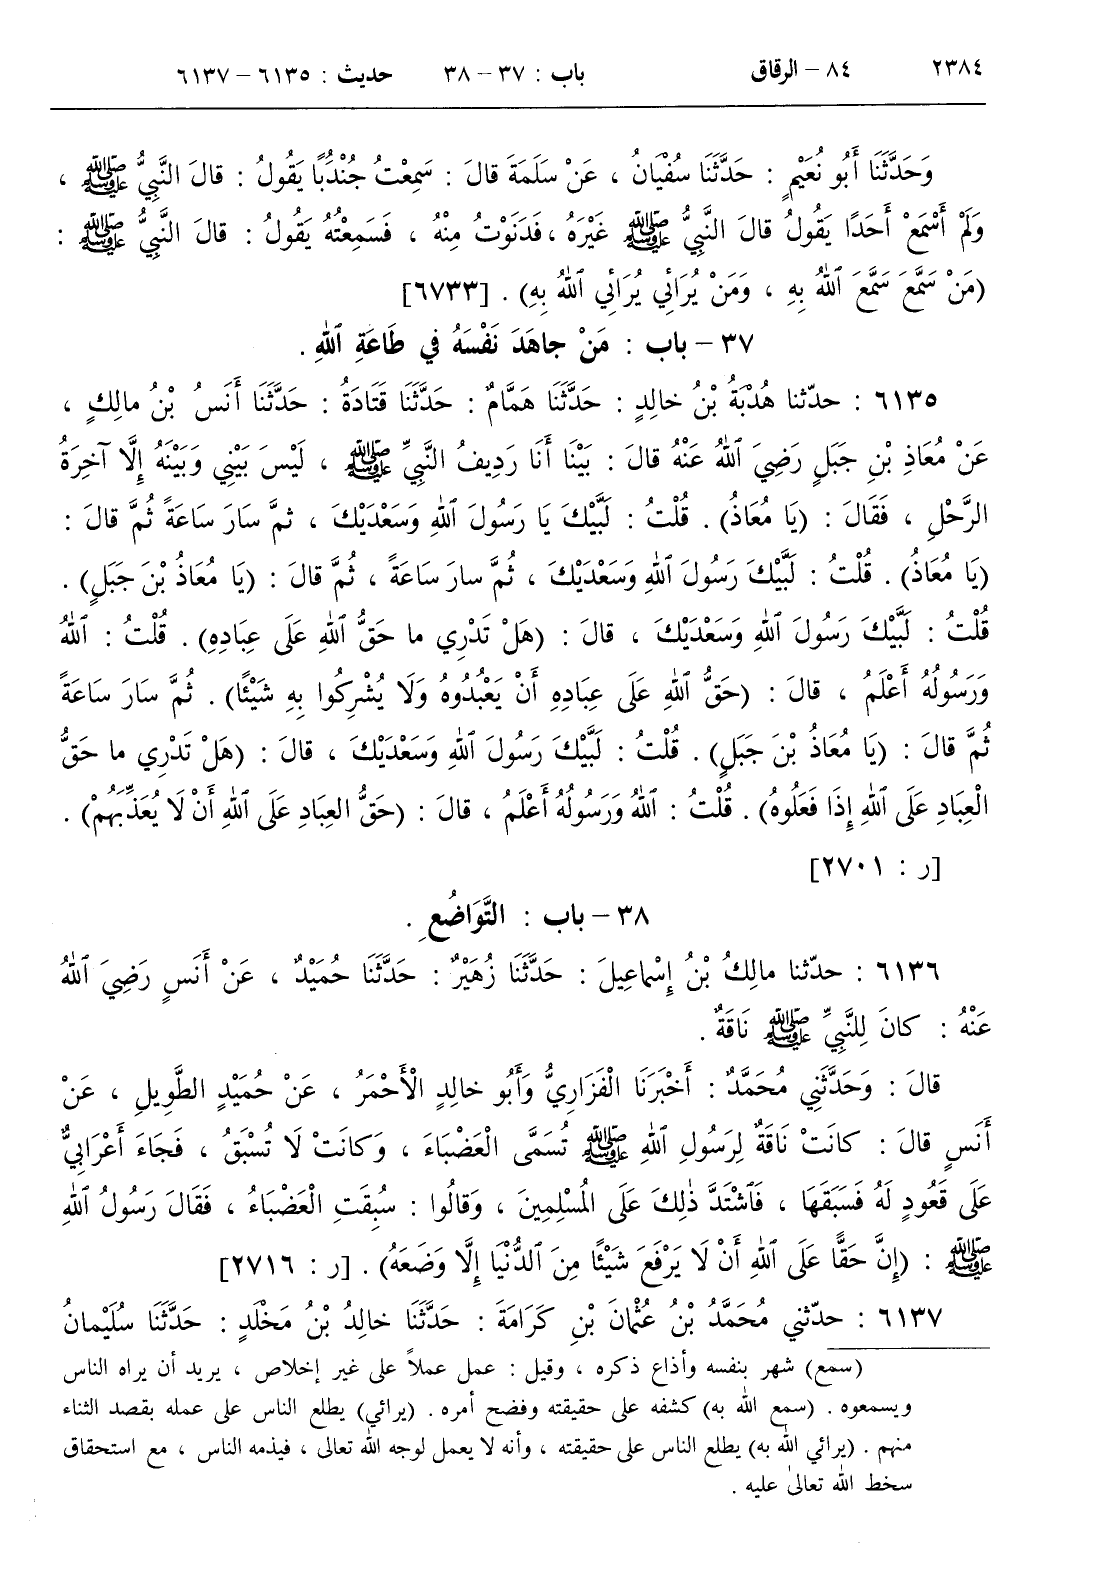 ٢٣٨٤ ٨٤ – الرقاق باب : ٣٧ – ٣٨ حديث : ٦١٣٥ – ٦١٣٧
وَحَدَّثَنَا أَبُو نُعَيْمٍ : حَدَّثَنَا سُفْيَانُ ، عَنْ سَلَمَةَ قالَ : سَمِعْتُ جُنْدَبًا يَقُولُ : قالَ النَّبِيُّ ﷺ ،
وَلَمْ أَسْمَعْ أَحَدًا يَقُولُ قالَ النَّبِيُّ ﷺ غَيْرَهُ ، فَدَنَوْتُ مِنْهُ ، فَسَمِعْتُهُ يَقُولُ : قالَ النَّبِيُّ ﷺ :
(مَنْ سَمَّعَ سَمَّعَ ٱللهُ بِهِ ، وَمَنْ يُرَائِي يُرَائِي ٱللهُ بِهِ) . [٦٧٣٣]
٣٧ – باب : مَنْ جاهَدَ نَفْسَهُ في طَاعَةِ ٱللهِ .
٦١٣٥ : حدّثنا هُدْبَةُ بْنُ خالِدٍ : حَدَّثَنَا هَمَّامٌ : حَدَّثَنَا قَتَادَةُ : حَدَّثَنَا أَنَسُ بْنُ مالِكٍ ،
عَنْ مُعَاذِ بْنِ جَبَلٍ رَضِيَ ٱللهُ عَنْهُ قالَ : بَيْنَا أَنَا رَدِيفُ النَّبِيِّ ﷺ ، لَيْسَ بَيْنِي وَبَيْنَهُ إِلَّا آخِرَةُ
الرَّحْلِ ، فَقَالَ : (يَا مُعَاذُ) . قُلْتُ : لَبَّيْكَ يَا رَسُولَ ٱللهِ وَسَعْدَيْكَ ، ثمَّ سَارَ سَاعَةً ثُمَّ قالَ :
(يَا مُعَاذُ) . قُلْتُ : لَبَّيْكَ رَسُولَ ٱللهِ وَسَعْدَيْكَ ، ثُمَّ سارَ سَاعَةً ، ثُمَّ قالَ : (يَا مُعَاذُ بْنَ جَبَلٍ) .
قُلْتُ : لَبَّيْكَ رَسُولَ ٱللهِ وَسَعْدَيْكَ ، قالَ : (هَلْ تَدْرِي ما حَقُّ ٱللهِ عَلَى عِبَادِهِ) . قُلْتُ : ٱللهُ
وَرَسُولُهُ أَعْلَمُ ، قالَ : (حَقُّ ٱللهِ عَلَى عِبَادِهِ أَنْ يَعْبُدُوهُ وَلَا يُشْرِكُوا بِهِ شَيْئًا) . ثُمَّ سَارَ سَاعَةً
ثُمَّ قالَ : (يَا مُعَاذُ بْنَ جَبَلٍ) . قُلْتُ : لَبَّيْكَ رَسُولَ ٱللهِ وَسَعْدَيْكَ ، قالَ : (هَلْ تَدْرِي ما حَقُّ
الْعِبَادِ عَلَى ٱللهِ إِذَا فَعَلُوهُ) . قُلْتُ : ٱللهُ وَرَسُولُهُ أَعْلَمُ ، قالَ : (حَقُّ العِبَادِ عَلَى ٱللهِ أَنْ لَا يُعَذِّبَهُمْ) .
[ر : ٢٧٠١]
٣٨ – باب : التَّوَاضُعِ .
٦١٣٦ : حدّثنا مالِكُ بْنُ إِسْماعِيلَ : حَدَّثَنَا زُهَيْرٌ : حَدَّثَنَا حُمَيْدٌ ، عَنْ أَنَسٍ رَضِيَ ٱللهُ
عَنْهُ : كانَ لِلنَّبِيِّ ﷺ نَاقَةٌ .
قالَ : وَحَدَّثَنِي مُحَمَّدٌ : أَخْبَرَنَا الْفَزَارِيُّ وَأَبُو خالِدٍ الْأَحْمَرُ ، عَنْ حُمَيْدٍ الطَّوِيلِ ، عَنْ
أَنَسٍ قالَ : كانَتْ نَاقَةٌ لِرَسُولِ ٱللهِ ﷺ تُسَمَّى الْعَضْبَاءَ ، وَكانَتْ لَا تُسْبَقُ ، فَجَاءَ أَعْرَابِيٌّ
عَلَى قَعُودٍ لَهُ فَسَبَقَهَا ، فَٱشْتَدَّ ذٰلِكَ عَلَى الْمُسْلِمِينَ ، وَقالُوا : سُبِقَتِ الْعَضْبَاءُ ، فَقَالَ رَسُولُ ٱللهِ
ﷺ : (إِنَّ حَقًّا عَلَى ٱللهِ أَنْ لَا يَرْفَعَ شَيْئًا مِنَ ٱلدُّنْيَا إِلَّا وَضَعَهُ) . [ر : ٢٧١٦]
٦١٣٧ : حدّثني مُحَمَّدُ بْنُ عُثْمانَ بْنِ كَرَامَةَ : حَدَّثَنَا خالِدُ بْنُ مَخْلَدٍ : حَدَّثَنَا سُلَيْمانُ
(سمع) شهر بنفسه وأذاع ذكره ، وقيل : عمل عملاً على غير إخلاص ، يريد أن يراه الناس
ويسمعوه . (سمع الله به) كشفه على حقيقته وفضح أمره . (يرائي) يطلع الناس على عمله بقصد الثناء
منهم . (يرائي الله به) يطلع الناس على حقيقته ، وأنه لا يعمل لوجه الله تعالى ، فيذمه الناس ، مع استحقاق
سخط الله تعالىٰ عليه .